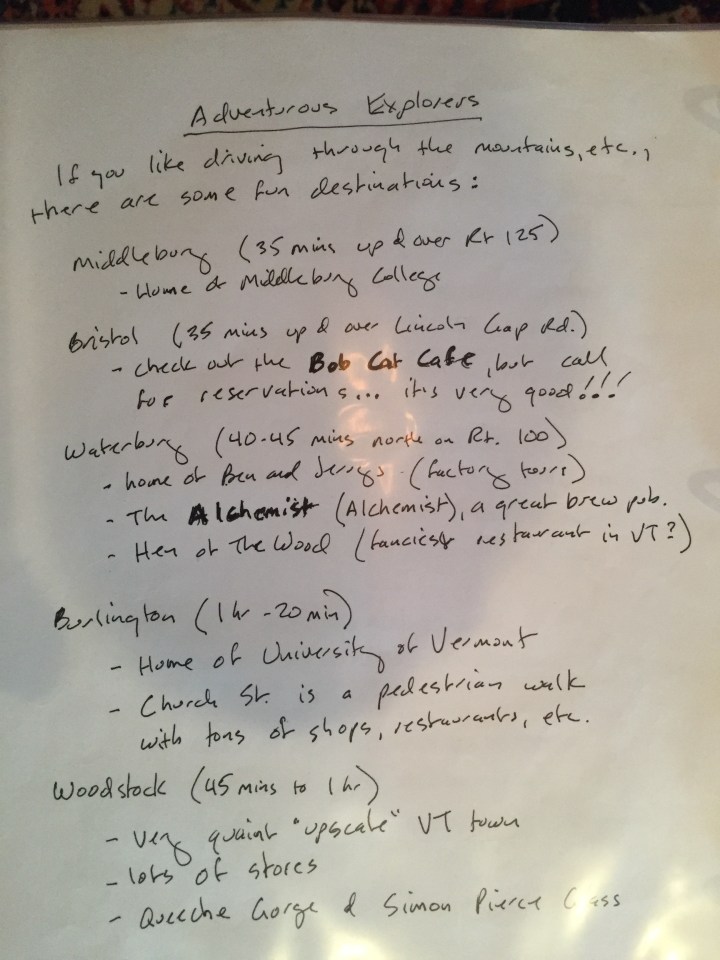 Adventurous Explorers
If you like driving through the mountains, etc.,
there are some fun destinations:
Middlebury (35 mins up & over Rt 125)
- Home of Middlebury College
Bristol (35 mins up & over Lincoln Gap Rd.)
- check out the Bob Cat Cafe, but call
for reservations... it's very good!!!
Waterbury (40-45 mins north on Rt. 100)
- home of Ben and Jerrys (factory tours)
- The Alchemist (Alchemist), a great brew pub.
- Hen of The Wood (fanciest restaurant in VT?)
Burlington (1 hr - 20 min)
- Home of University of Vermont
- Church St. is a pedestrian walk
with tons of shops, restaurants, etc.
Woodstock (45 mins to 1 hr)
- Very quaint "upscale" VT town
- lots of stores
- Queeche Gorge & Simon Pierce Glass